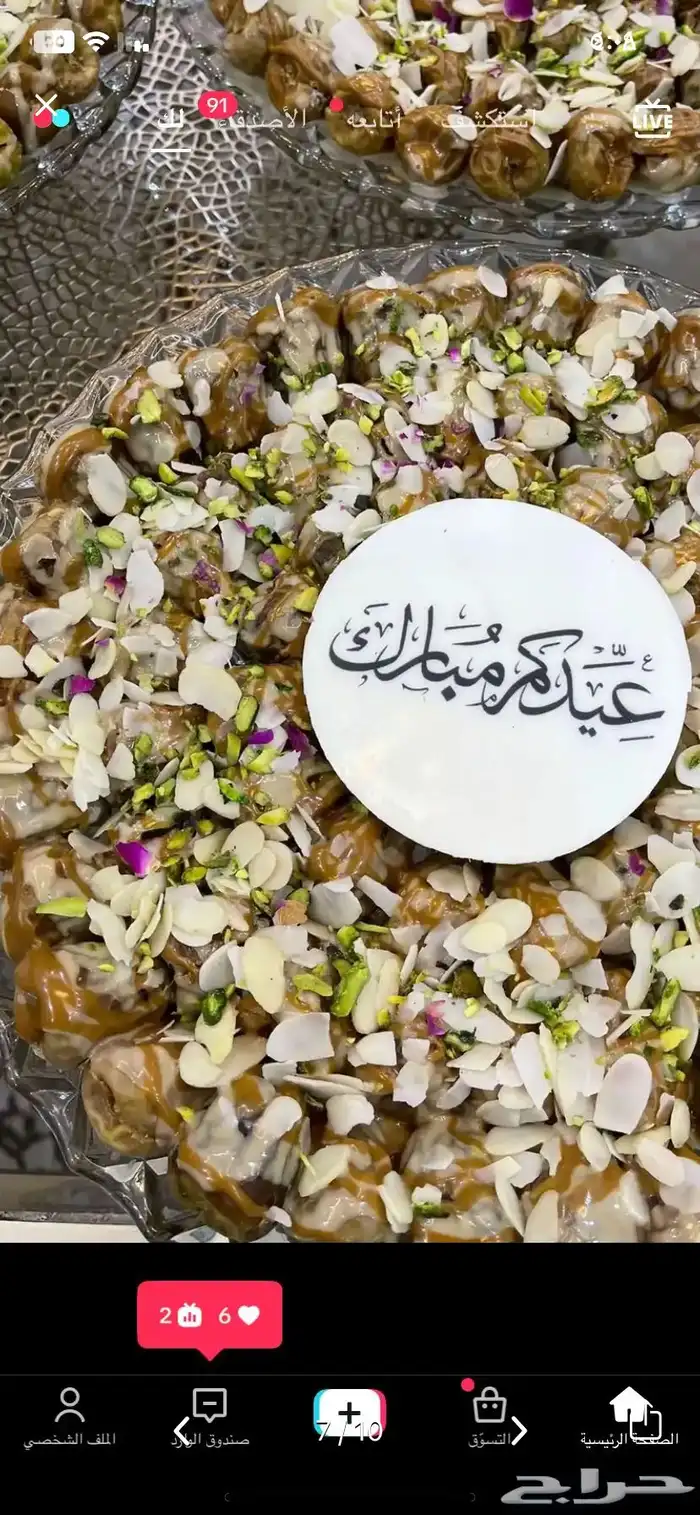 لك
91
الأصدقاء
أتابعه
استكشف
LIVE
عيدكم مبارك
2 6
الملف الشخصي
صندوق الوارد
7 / 10
التسوّق
الصفحة الرئيسية
حراج